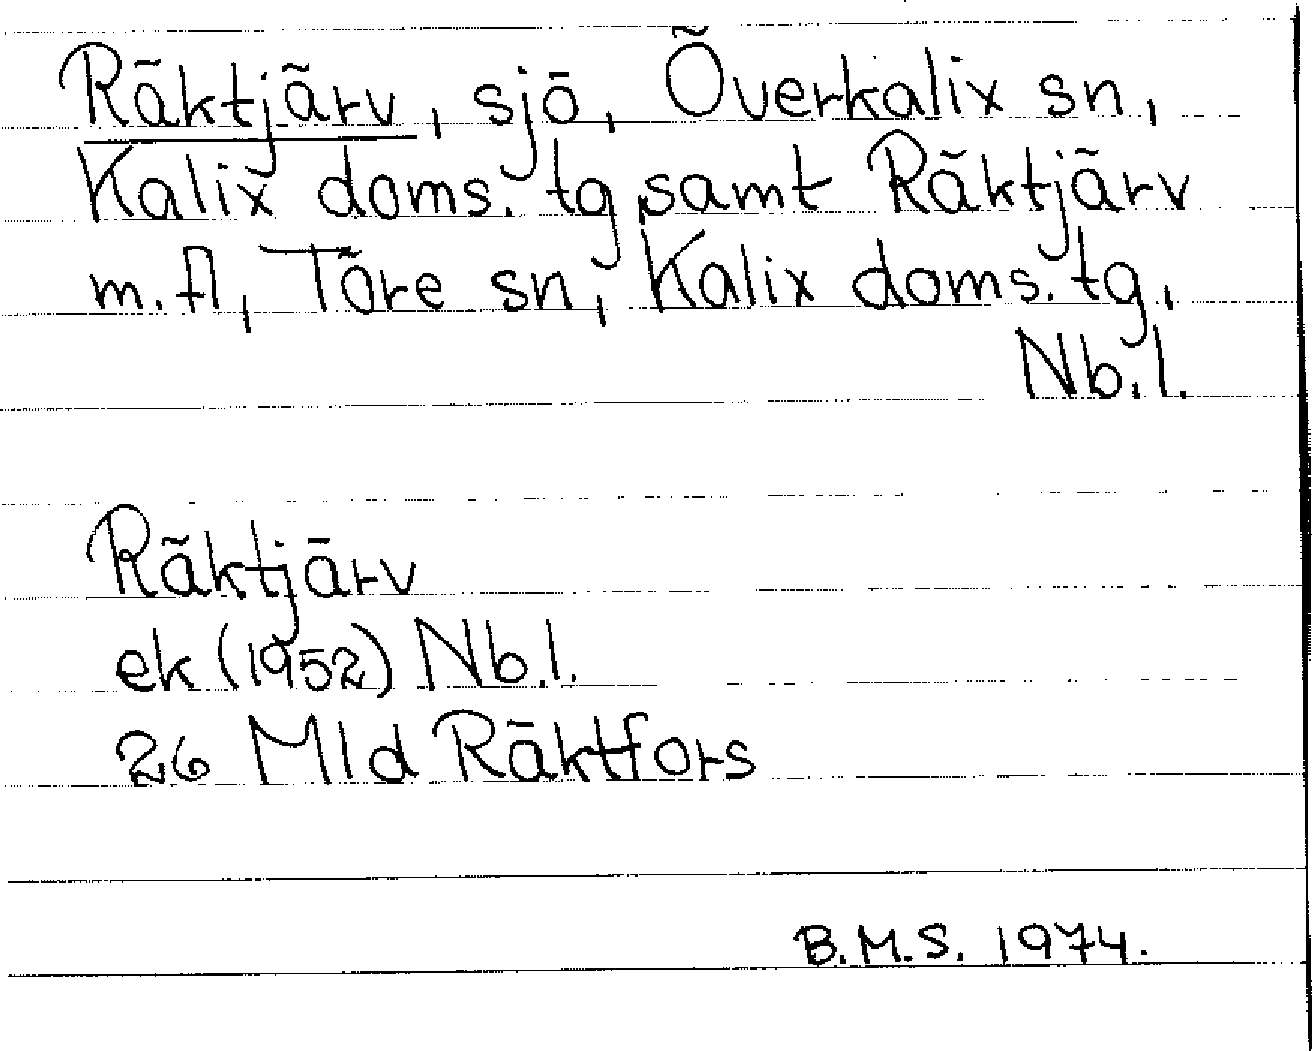 Räktjärv, sjö, Överkalix sn,
Kalix doms. tg, samt Räktjärv
m. fl, Töre sn, Kalix doms. tg,
Nb. l.
Räktjärv
ek (1952) Nb. l.
26 Mld Räktfors
B.M.S. 1974.